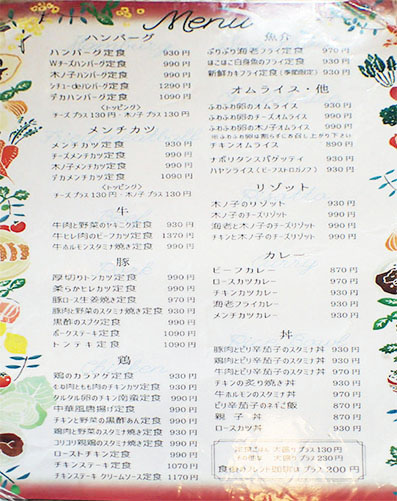 Menu
ハンバーグ
ハンバーグ定食 930円
Wチーズハンバーグ定食 990円
木ノ子ハンバーグ定食 990円
シチューdeハンバーグ定食 1290円
デカハンバーグ定食 1090円
<トッピング>
チーズ プラス 130円・木ノ子 プラス 130円
メンチカツ
メンチカツ定食 930円
チーズメンチカツ定食 990円
木ノ子メンチカツ定食 990円
デカメンチカツ定食 1090円
<トッピング>
チーズ プラス 130円・木ノ子 プラス 130円
牛
牛肉と野菜のヤキニク定食 930円
牛ヒレ肉のビーフカツ定食 1370円
牛ホルモンスタミナ焼き定食 990円
豚
厚切りトンカツ定食 990円
柔らかヒレカツ定食 990円
豚ロース生姜焼き定食 970円
豚肉と野菜のスタミナ焼き定食 930円
黒酢のスブタ定食 990円
ポークステーキ定食 1090円
トンテキ定食 1090円
鶏
鶏のカラアゲ定食 930円
むね肉ともも肉のチキンカツ定食 930円
タルタル卵のチキン南蛮定食 990円
中華風唐揚げ定食 990円
鶏肉と野菜の黒酢あん定食 990円
鶏肉と野菜のスタミナ焼き定食 930円
コリコリ親鶏のスタミナ焼き定食 930円
ローストチキン定食 990円
チキンステーキ定食 1170円
チキンステーキ クリームソース定食 1170円
魚介
ぷりぷり海老フライ定食 970円
ほこほこ白身魚のフライ定食 930円
新鮮カキフライ定食(季節限定) 930円
オムライス・他
ふわふわ卵のオムライス 930円
ふわふわ卵のチーズオムライス 990円
ふわふわ卵の木ノ子オムライス 990円
チキンオムライス 890円
ナポリタンスパゲッティ 930円
ハヤシライス(ビーフストロガノフ) 930円
リゾット
木ノ子のリゾット 930円
木ノ子のチーズリゾット 990円
海老と木ノ子のチーズリゾット 990円
チキンと木ノ子のチーズリゾット 990円
カレー
ビーフカレー 870円
ロースカツカレー 930円
チキンカツカレー 930円
海老フライカレー 930円
メンチカツカレー 930円
丼
豚肉とピリ辛茄子のスタミナ丼 930円
鶏肉とピリ辛茄子のスタミナ丼 930円
チキンの炙り焼き丼 930円
牛ホルモンのスタミナ丼 930円
ピリ辛茄子のネギご飯 870円
親子丼 870円
ロースカツ丼 930円
大盛り プラス 130円
大盛り プラス 230円
プラス 200円